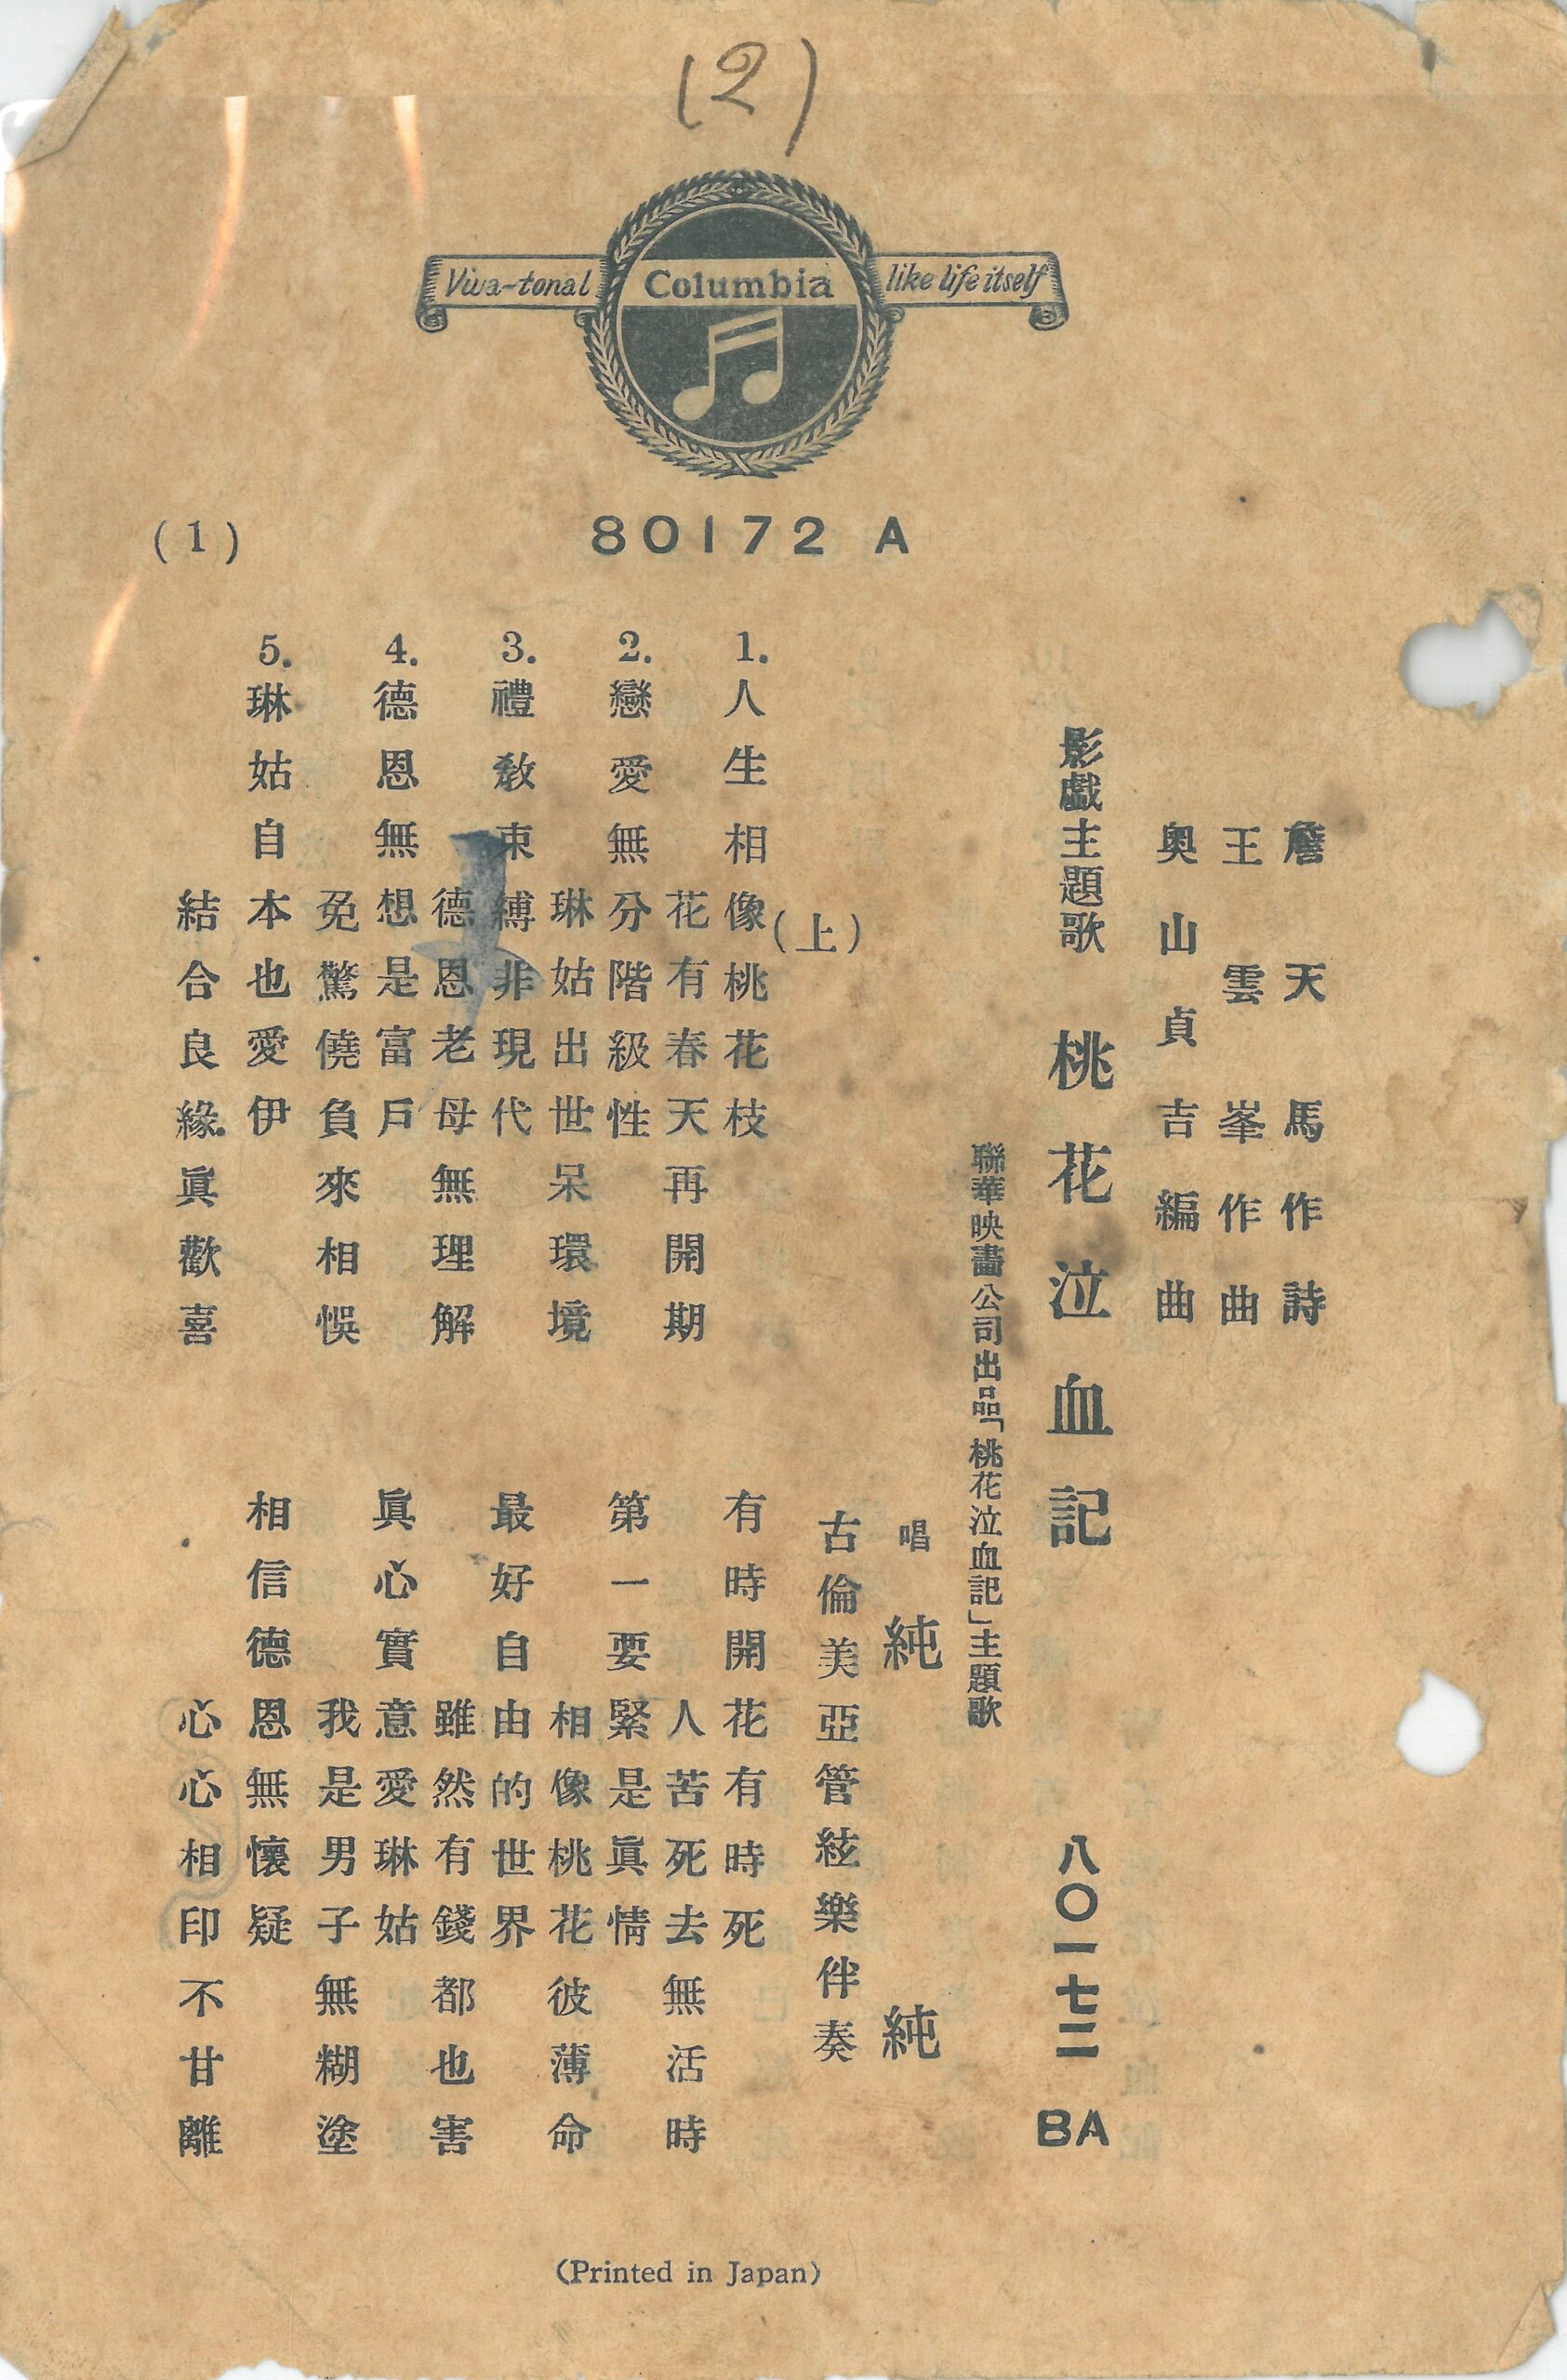 (2)
Viva-tonal Columbia like life itself
80172 A
(1)
詹天馬作詩
王雲峯作曲
奥山貞吉編曲
影戲主題歌 桃花泣血記 八〇一七二 BA
聯華映畫公司出品「桃花泣血記」主題歌
唱 純純
古倫美亞管絃樂伴奏
(上)
1. 人生相像桃花枝 有時開花有時死
花有春天再開期 人苦死去無活時
2. 戀愛無分階級性 第一要緊是眞情
琳姑出世呆環境 相像桃花彼薄命
3. 禮敎束縛非現代 最好自由的世界
德恩老母無理解 雖然有錢都也害
4. 德恩無想是富戶 眞心實意愛琳姑
免驚僥負來相悞 我是男子無糊塗
5. 琳姑自本也愛伊 相信德恩無懷疑
結合良緣眞歡喜 心心相印不甘離
(Printed in Japan)